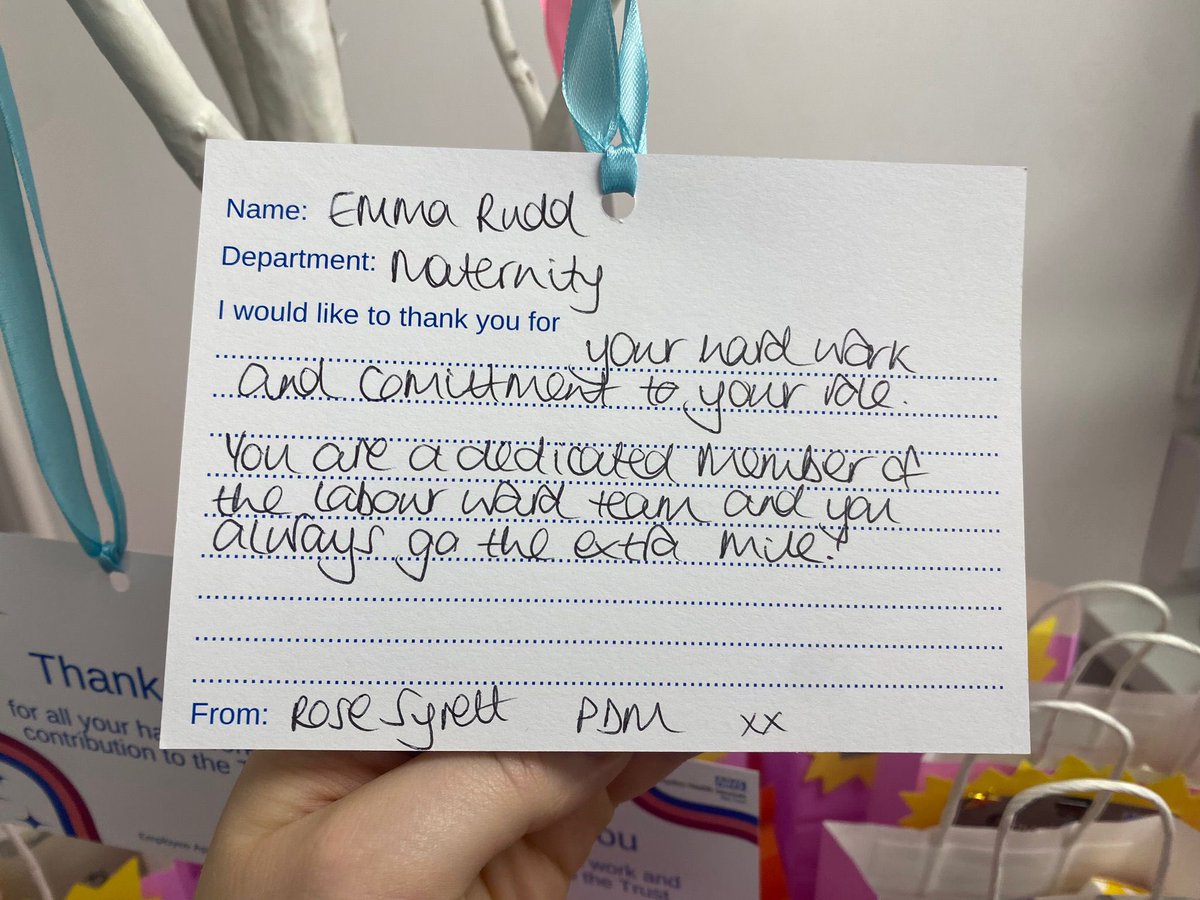 Name: Emma Rudd
Department: Maternity
I would like to thank you for
your hard work
and comittment to your role.
You are a dedicated member of
the labour ward team and you
always go the extra mile!
From: Rose Syrett PDM xx
Thank
for all your ha
contribution to the T
Employee Ap
NHS
ou
work and
the Trust